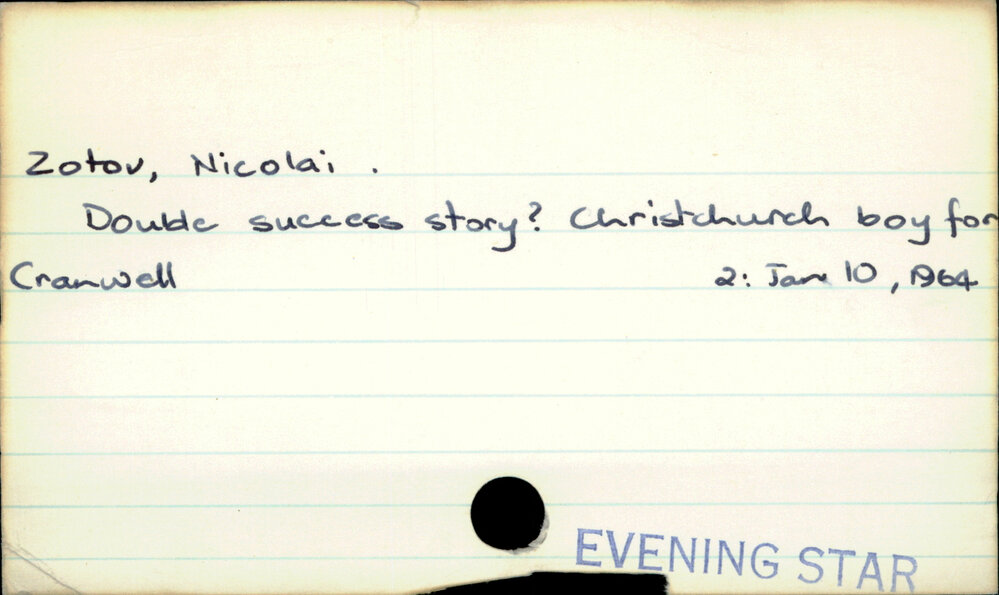 Zotov, Nicolai.
Double success story? Christchurch boy for
Cranwell 2: Jan 10, 1964
EVENING STAR